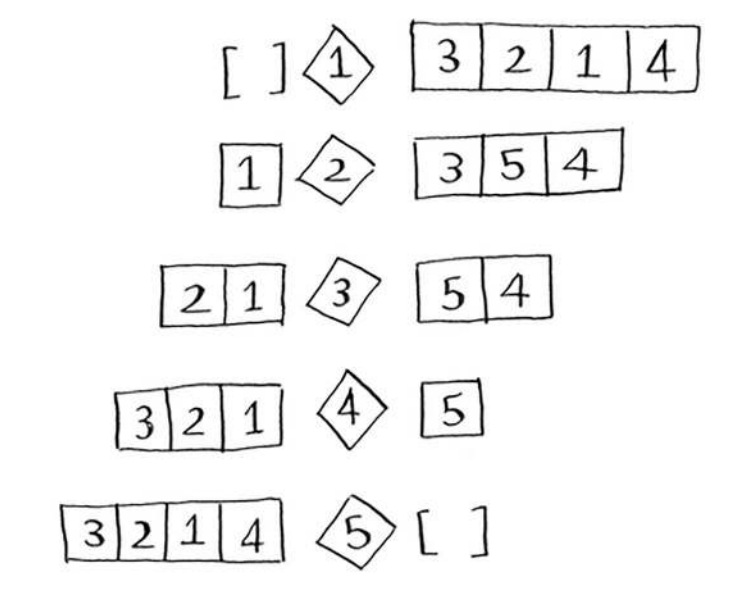 [ ] 1 3 2 1 4
1 2 3 5 4
2 1 3 5 4
3 2 1 4 5
3 2 1 4 5 [ ]